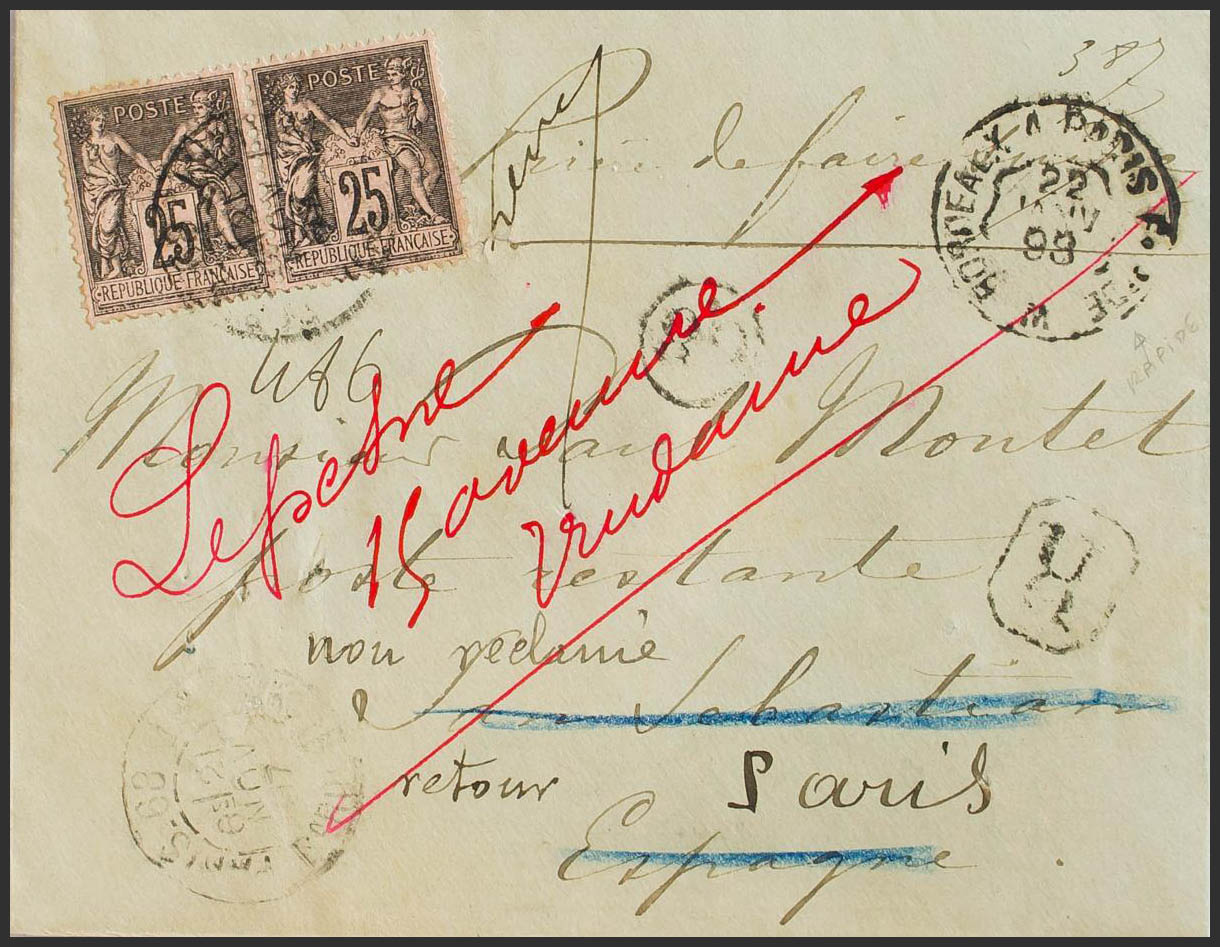 387
POSTE 25 REPUBLIQUE FRANÇAISE
POSTE 25 REPUBLIQUE FRANÇAISE
Prière de faire
BORDEAUX A PARIS
22
98
4
RAPIDE
486
Monsieur Montet
Lepesne
15 avenue
Trudaine
poste restante
R
non réclamé
San Sebastian
retour Paris
Espagne